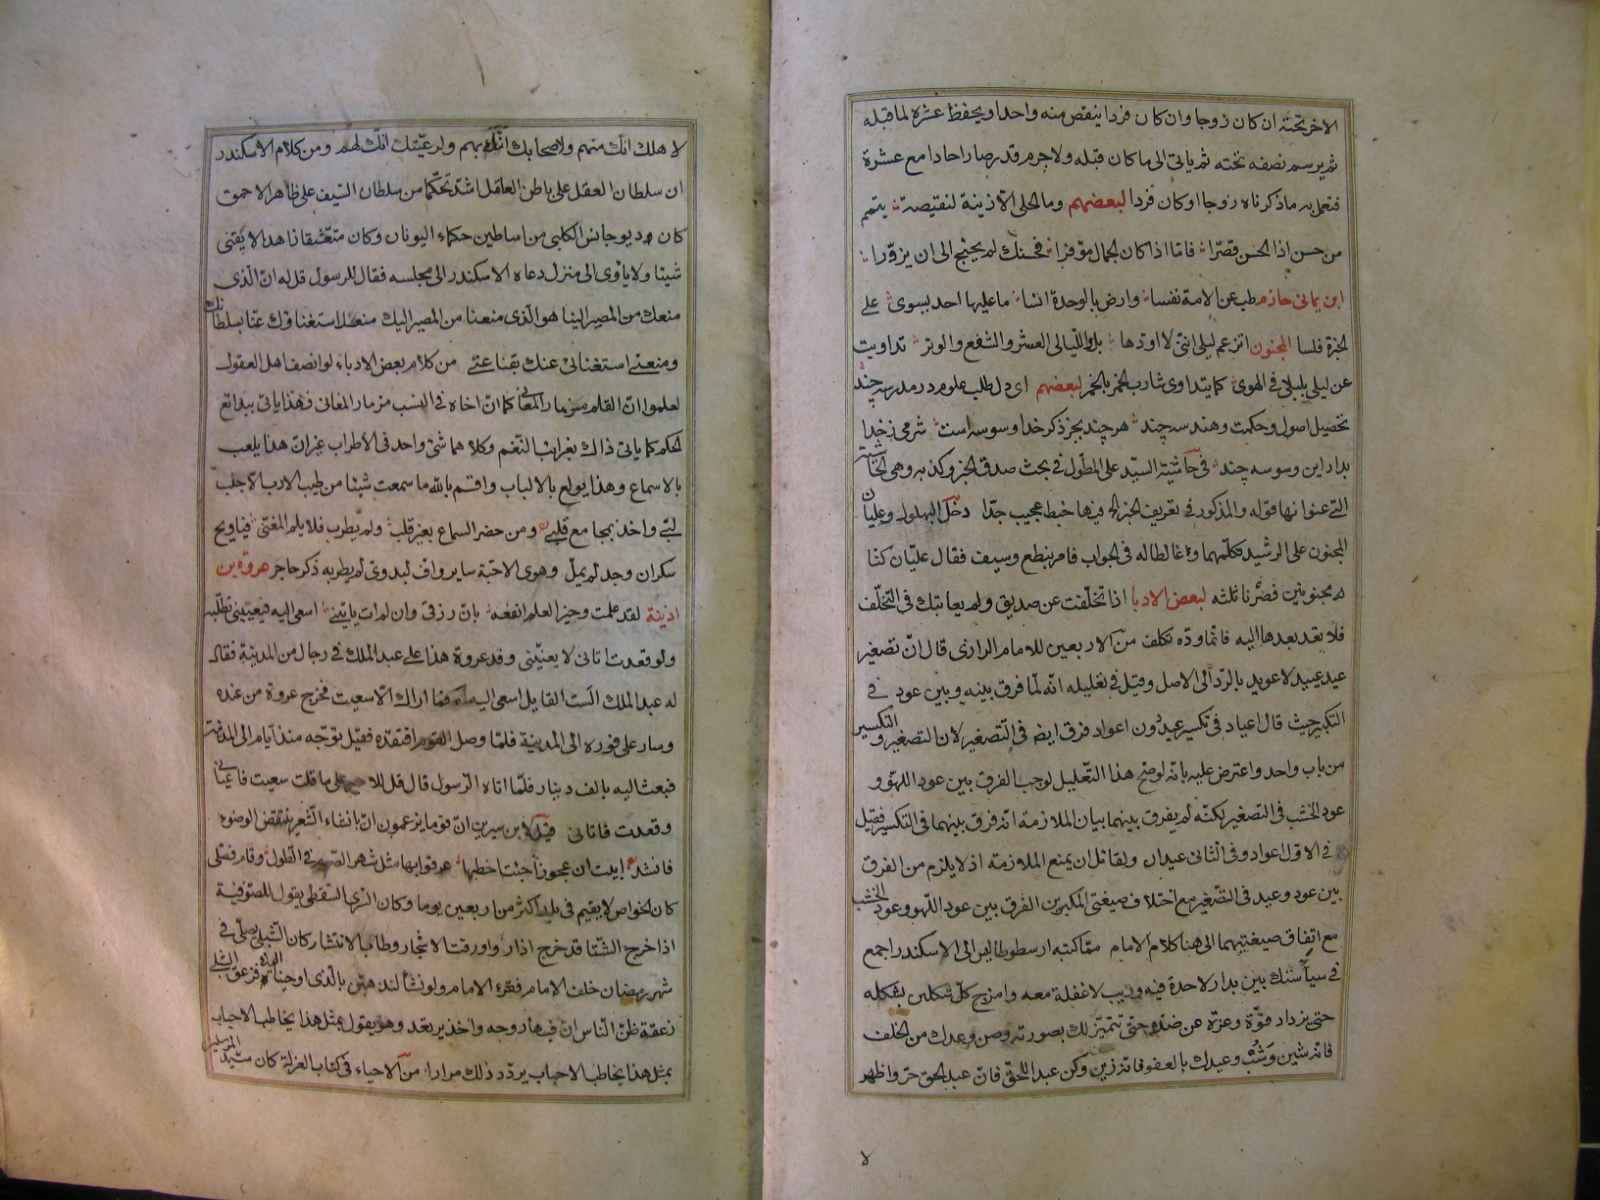 الاخر تحته ان كان زوجا وان كان فردا ينقص منه واحدا ويحفظ عشرة لما قبله
ثم يرسم نصفه تحته ثم ياتى الى ما كان قبله ولاجرم قد صار احادا مع عشرة
فنعمل به ما ذكرناه زوجا او كان فردا لبعضهم وما الحلى الا زينة لنقيصة يتمم
من حسن اذا الحسن قصّرا فاما اذا كان الجمال موفرا فحسنك لم يحتج الى ان يزوّرا
ابن يمانى حازم طب عن الامة نفسا وارض بالوحدة انسا ما عليها احد يسوى على
الخبرة فلسا المجنون اتزعم ليلى اننى لا اودّها بلى والليالى العشر والشفع والوتر تداويت
عن ليلى بليلى فى الهوى كما يتداوى شارب الخمر بالخمر لبعضهم اى دل طلب علوم در مدرسه چند
تحصيل اصول وحكمت وهندسه چند هر چند بجز ذكر خدا وسوسه است شرمى ز خدا
بدار اين وسوسه چند فى حاشية السيّد على المطول فى بحث صدق الخبر وكذبه وهى الحاشية
التى عنوانها قوله والمذكور فى تعريف الخبر الخ فيها خبط عجيب جدّا دخل البهلول وعليان
المجنون على الرشيد فكلمهما وغالطاله فى الجواب فامر بنطع وسيف فقال عليّان كنّا
مجنونين فصرنا ثلثه لبعض الادبا اذا تخلّفت عن صديق ولم يعاتبك فى التخلّف
فلا تعد بعدها اليه فانما ودّه تكلف من الاربعين للامام الرازى قال انّ تصغير
عيد عييد لا عويد بالردّ الى الاصل وقيل فى تعليله انّه لما فرق بينه وبين عود فى
التكبير حيث قال اعياد فى تكسير عيد دون اعواد فرق ايضا فى التصغير لان التصغير والتكسير
من باب واحد واعترض عليه بانّه لو صح هذا التعليل لوجب الفرق بين عود اللهو و
عود الخشب فى التصغير لكنّه لم يفرق بينهما بيان الملازمة انه فرق بينهما فى التكسير فقيل
فى الاول اعواد وفى الثانى عيدان ولقائل ان يمنع الملازمه اذ لا يلزم من الفرق
بين عود وعيد فى التصغير مع اختلاف صيغتى المكبرين الفرق بين عود اللهو وعود الخشب
مع اتفاق صيغتيهما الى هنا كلام الامام مما كتبه ارسطوطاليس الى الاسكندر اجمع
فى سياستك بين بدار لا حدة فيه وريب لا غفلة معه وامزج كلّ شكل بشكله
حتى يزداد قوّة وعزة عن ضدّه حتى تتميّز لك بصورته وصن وعدك من الخلف
فانه شين وشب وعيدك بالعفو فانه زين وكن عبدا للحقّ فانّ عبد الحق حرّ واظهر
لا
لاهلك انك منهم ولاصحابك انك بهم ولرعيّتك انّك لهم ومن كلام الاسكندر
ان سلطان العقل على باطن العاقل اشدّ تحكّما من سلطان السّيف على ظاهر الاحمق
كان ديوجانس الكلبى من اساطين حكماء اليونان وكان متقشفا زاهدا لا يقتنى
شيئا ولا ياوى الى منزل دعاه الاسكندر الى مجلسه فقال للرسول قل له انّ الّذى
منعك من المصير الينا هو الّذى منعنا من المصير اليك منعك استغناؤك عنّا بسلطانك
ومنعنى استغنائى عنك بقناعتى من كلام بعض الادباء لو انصف اهل العقول
لعلموا انّ القلم مزمار المعانى كما انّ اخاه فى النسب مزمار المغانى فهذا ياتى ببدائع
الحكم كما ياتى ذاك بغرائب النّغم وكلاهما شئ واحد فى الاطراب غير انّ هذا يلعب
بالاسماع وهذا يولع بالالباب واقسم بالله ما سمعت شيئا من طيب الادب الا جلب
لبّى واخذ بمجامع قلبى ومن حضر السماع بغير قلب ولم يطرب فلا يلم المغنّى فيا ويح
سكران وجد لم يمل وهوى الاحبّة ساير واف لبدوى لم يطربه ذكر حاجر عروة بن
اذينة لقد علمت وخير العلم انفعه بانّ رزقى وان لم ات ياتينى اسعى اليه فيعيينى تطلبه
ولو قعدت اتانى لا يعنّينى وفد عروة هذا على عبد الملك فى رجال من المدينة فقال
له عبد الملك الست القايل اسعى اليه فما اراك الّا سعيت فخرج عروة من عنده
وسار على فوره الى المدينة فلما وصل القوم افتقده فقيل توجّه منذ ايام الى المدينة
فبعث اليه بالف دينار فلمّا اتاه الرّسول قال قل للامير على ما قلت سعيت فاعيانى
وقعدت فاتانى قيل لابن سيرين انّ قوما يزعمون انّ انشاء الشّعر ينقض الوضوء
فانشد نبئت ان عجوزا جئت اخطبها عرقوبها مثل شهر الصّوم فى الطّول وقام فصلّى
كان الخواص لا يقيم فى بلد اكثر من اربعين يوما وكان السّرى السّقطى يقول للصّوفية
اذا خرج الشّتا قد خرج اذار واورقت الاشجار وطاب الانتشار كان الشّبلى يصلّى فى
شهر رمضان خلف الامام فقرء الامام ولو نشأ لنذهبّن بالّذى اوحينا اليك فزعق الشبلى
زعقة ظنّ الناس ان فيها روحه واخذ يرتعد وهو يقول بمثل هذا يخاطب الاحباب
بمثل هذا يخاطب الاحباب يردّد ذلك مرارا من الاحياء فى كتاب العزلة كان سيّد المرسلين